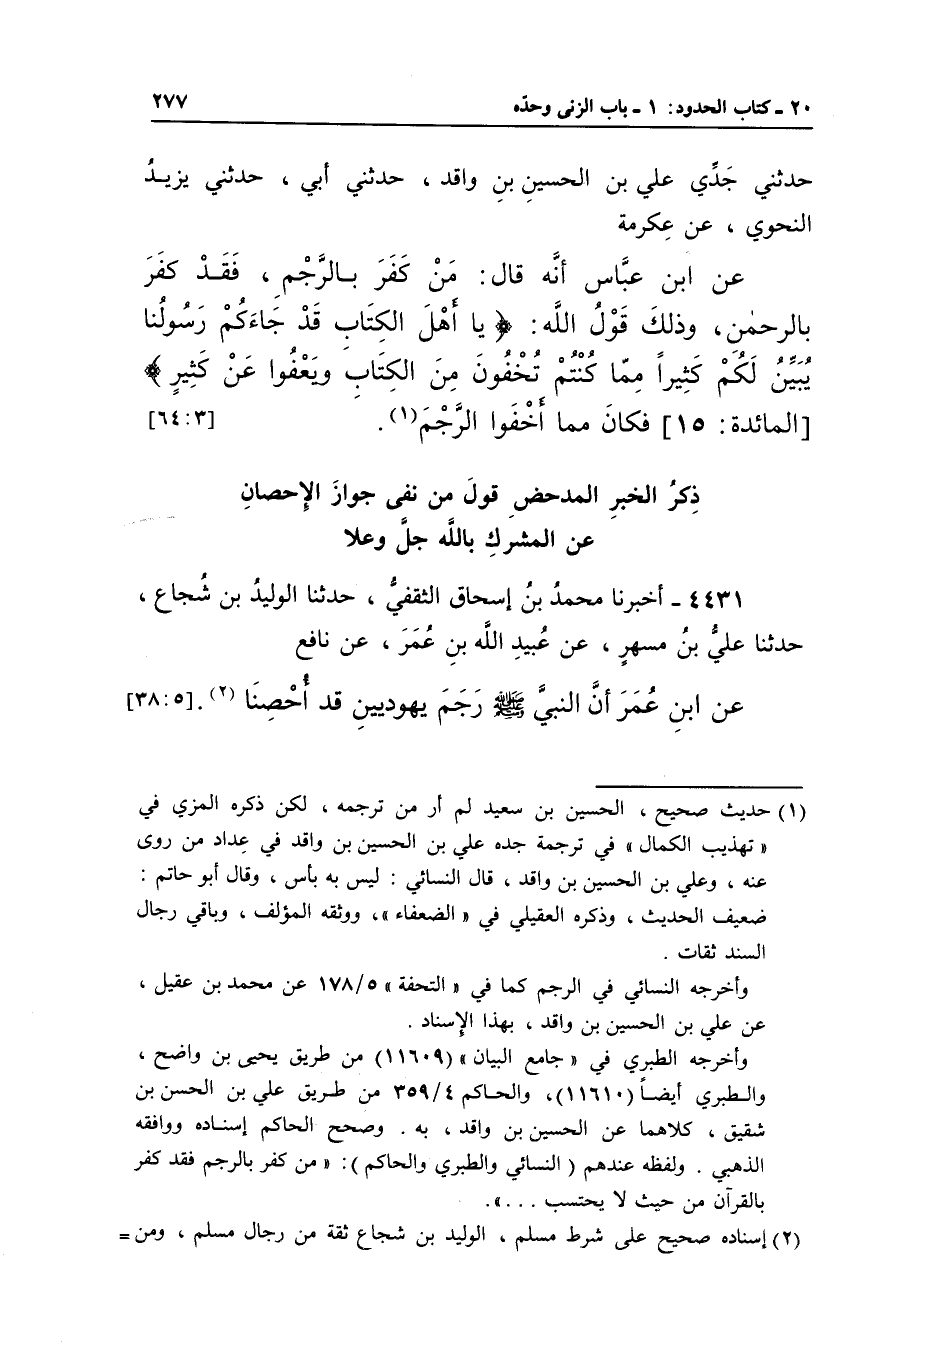 ٢٠ ـ كتاب الحدود: ١ ـ باب الزنى وحدّه ٢٧٧
حدثني جَدِّي علي بن الحسينِ بنِ واقد ، حدثني أبي ، حدثني يزيدُ
النحوي ، عن عِكرمة
عن ابن عبَّاس أنَّه قال: مَنْ كَفَرَ بالرَّجْمِ ، فَقَدْ كفَرَ
بالرحمٰن، وذلكَ قَوْلُ اللَّه: ﴿ يا أَهْلَ الكِتَابِ قَدْ جَاءَكُمْ رَسُولُنا
يُبَيِّنُ لَكُمْ كَثِيراً مِمّا كُنْتُمْ تُخْفُونَ مِنَ الكِتَابِ ويَعْفُوا عَنْ كَثِيرٍ ﴾
[المائدة: ١٥] فكانَ مما أَخْفَوا الرَّجْمَ(١). [٦٤:٣]
ذِكرُ الخبرِ المدحضِ قولَ من نفى جوازَ الإِحصانِ
عن المشركِ باللَّه جلَّ وعلا
٤٤٣١ ـ أخبرنا محمدُ بنُ إسحاق الثقفيُّ ، حدثنا الوليدُ بن شُجاع ،
حدثنا عليُّ بنُ مسهرٍ ، عن عُبيدِ اللَّه بنِ عُمَرَ ، عن نافع
عن ابنِ عُمَرَ أنَّ النبيَّ ﷺ رَجَمَ يهوديينِ قد أُحْصِنَا (٢) .[٣٨:٥]
(١) حديث صحيح ، الحسين بن سعيد لم أر من ترجمه ، لكن ذكره المزي في
« تهذيب الكمال » في ترجمة جده علي بن الحسين بن واقد في عِداد من روى
عنه ، وعلي بن الحسين بن واقد ، قال النسائي : ليس به بأس ، وقال أبو حاتم :
ضعيف الحديث ، وذكره العقيلي في « الضعفاء »، ووثقه المؤلف ، وباقي رجال
السند ثقات .
وأخرجه النسائي في الرجم كما في « التحفة » ١٧٨/٥ عن محمد بن عقيل ،
عن علي بن الحسين بن واقد ، بهذا الإِسناد .
وأخرجه الطبري في « جامع البيان » (١١٦٠٩) من طريق يحيى بن واضح ،
والطبري أيضاً (١١٦١٠)، والحاكم ٣٥٩/٤ من طريق علي بن الحسن بن
شقيق ، كلاهما عن الحسين بن واقد ، به . وصحح الحاكم إسناده ووافقه
الذهبي . ولفظه عندهم ( النسائي والطبري والحاكم ): « من كفر بالرجم فقد كفر
بالقرآن من حيث لا يحتسب . . . ».
(٢) إسناده صحيح على شرط مسلم ، الوليد بن شجاع ثقة من رجال مسلم ، ومن =